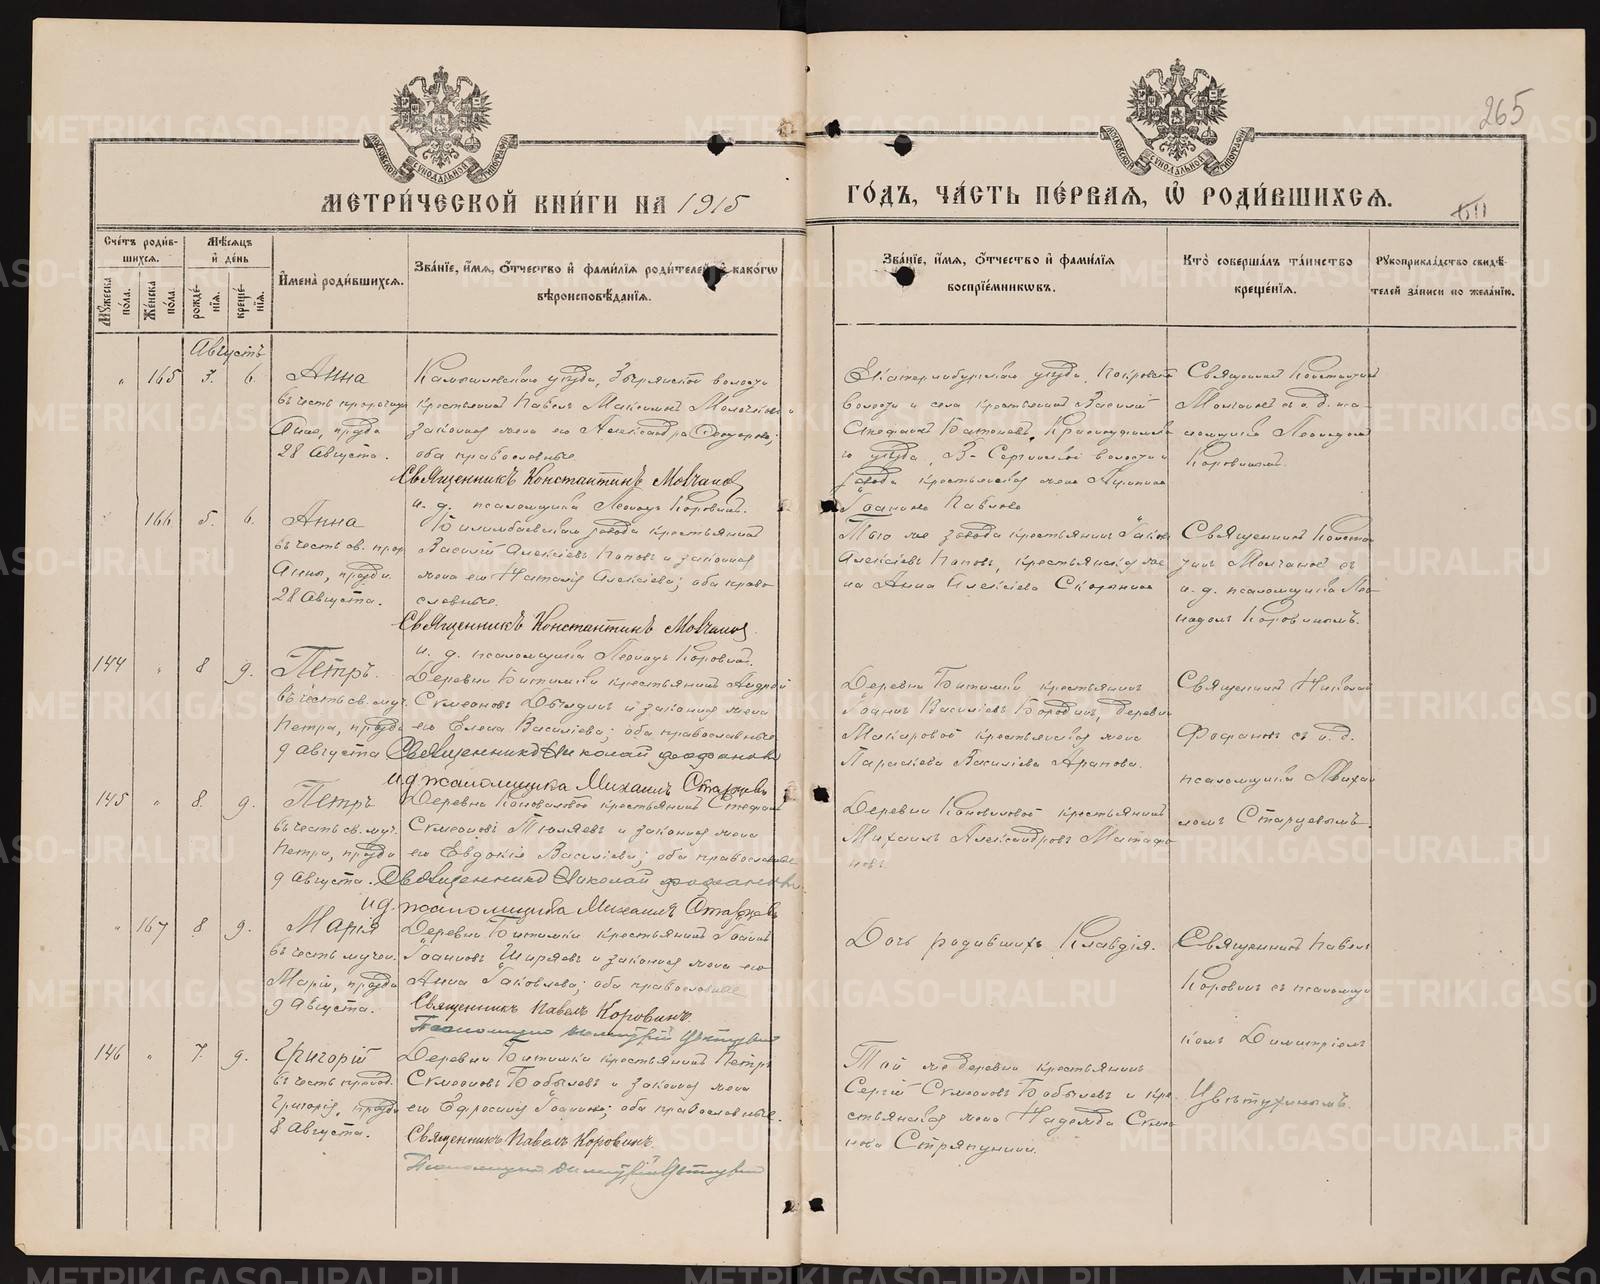 265
МОСКОВСКОЙ СѴНОДАЛЬНОЙ ТИПОГРАФІИ
МОСКОВСКОЙ СѴНОДАЛЬНОЙ ТИПОГРАФІИ
МЕТРИ́ЧЕСКОЙ КНИ́ГИ НА 1915
ГО́ДЪ, ЧА́СТЬ ПЕ́РВАЯ, Ѡ҆ РОДИ́ВШИХСЯ.
Сче́тъ роди́вшихся.
Му́жеска по́ла.
Же́нска по́ла.
Мѣ́сяцъ и҆ де́нь
рожде́нїя.
креще́нїя.
И҆мена̀ роди́вшихся.
Зва́нїе, и҆́мя, ѻ҆́тчество и҆ фами́лїя роди́телей, и҆ како́гѡ вѣроисповѣ́данїя.
Зва́нїе, и҆́мя, ѻ҆́тчество и҆ фами́лїя воспрїе́мникѡвъ.
Кто̀ соверша́лъ та́инство креще́нїя.
Рꙋкоприкла́дство свидѣ́телей за́писи по жела́нїю.
Августъ
" 165 3. 6.
Анна
въ честь пророчицы
Анны, празд.
28 Августа.
Камышловскаго уѣзда, волости
крестьянинъ Павелъ Максимовъ и
законная жена его Александра Ѳеодорова;
оба православные.
Священникъ Константинъ Молчанов
и. д. псаломщика Леонидъ Коровинъ.
Екатеринбургскаго уѣзда, Покровской
волости и села крестьянинъ Василій
Стефановъ Красноуфимска-
го уѣзда, В-Сергинской волости и
завода крестьянская жена
Іоаннова Павлова
Священникъ Константинъ
Молчановъ съ и. д. пса-
ломщика Леонидомъ
Коровинымъ.
166 5. 6.
Анна
въ честь св. прор.
Анны, праздн.
28 Августа.
Билимбаевскаго завода крестьянинъ
Василій Алексіевъ Поповъ и законная
жена его Наталія Алексіева; оба право-
славные.
Священникъ Константинъ Молчанов
и. д. псаломщика Леонидъ Коровинъ.
Того же завода крестьянинъ Іаковъ
Алексіевъ Поповъ, крестьянская же-
на Анна Алексіева
Священникъ Конста-
тинъ Молчановъ съ
и. д. псаломщика Лео-
нидомъ Коровинымъ.
144 " 8 9.
Петръ.
въ честь св. муч.
Петра, празд.
9 августа
Деревни Битимки крестьянинъ Андрей
Сѵмеоновъ и законная жена
его Елена Василіева; оба православные.
Священникъ Николай Феофановъ
и д псаломщика Михаилъ Старцевъ
Деревни Битимки крестьянинъ
Іоаннъ Василіевъ Бородинъ, деревни
Макаровой крестьянская жена
Параскева Василіева Арапова.
Священникъ Николай
Феофановъ съ и. д.
псаломщика Михаи-
ломъ Старцевымъ.
145 " 8. 9.
Петръ
въ честь св. муч.
Петра, празд.
9 августа.
Деревни Коноваловой крестьянинъ Стефанъ
Сѵмеоновъ Тюляевъ и законная жена
его Евдокія Василіева; оба православные
Священникъ Николай Феофановъ
и д. псаломщика Михаилъ Старцевъ
Деревни Коноваловой крестьянинъ
Михаилъ Александровъ Матафо-
новъ
" 167 8 9.
Марія
въ честь мучен.
Маріи, празд.
9 Августа.
Деревни Битимки крестьянинъ Іоаннъ
Іоанновъ Ширяевъ и законная жена его
Анна Іаковлева; оба православные
Священникъ Павелъ Коровинъ.
Псаломщикъ Димитрій Цвѣтухинъ
Дочь родившихъ Клавдія.
Священникъ Павелъ
Коровинъ съ псаломщи-
комъ Димитріемъ
Цвѣтухинымъ.
146 " 7. 9.
Григорій
въ честь препод.
Григорія, празд.
8 Августа.
Деревни Битимки крестьянинъ Петръ
Сѵмеоновъ Бабылевъ и законная жена
его Ефросинія Іоаннова; оба православные.
Священникъ Павелъ Коровинъ.
Псаломщикъ Димитрій Цвѣтухинъ
Той же деревни крестьянинъ
Сергій Сѵмеоновъ Бабылевъ и кре-
стьянская жена Надежда Сѵмео-
нова Стряпунина.
METRIKI.GASO-URAL.RU